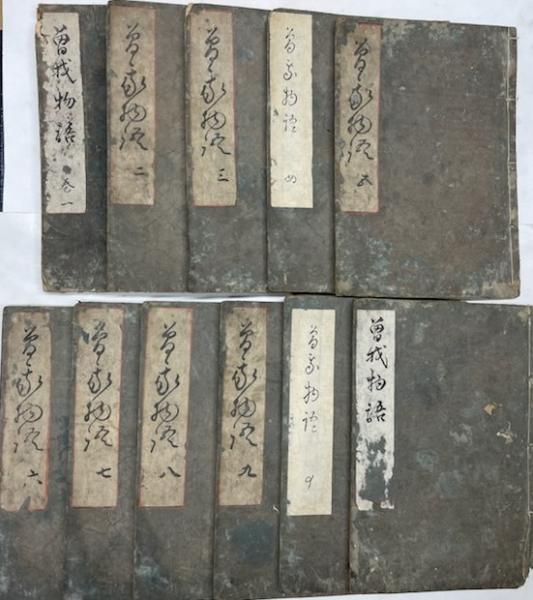 曽我物語 巻一
曽我物語 二
曽我物語 三
曽我物語 四
曽我物語 五
曽我物語 六
曽我物語 七
曽我物語 八
曽我物語 九
曽我物語
曽我物語